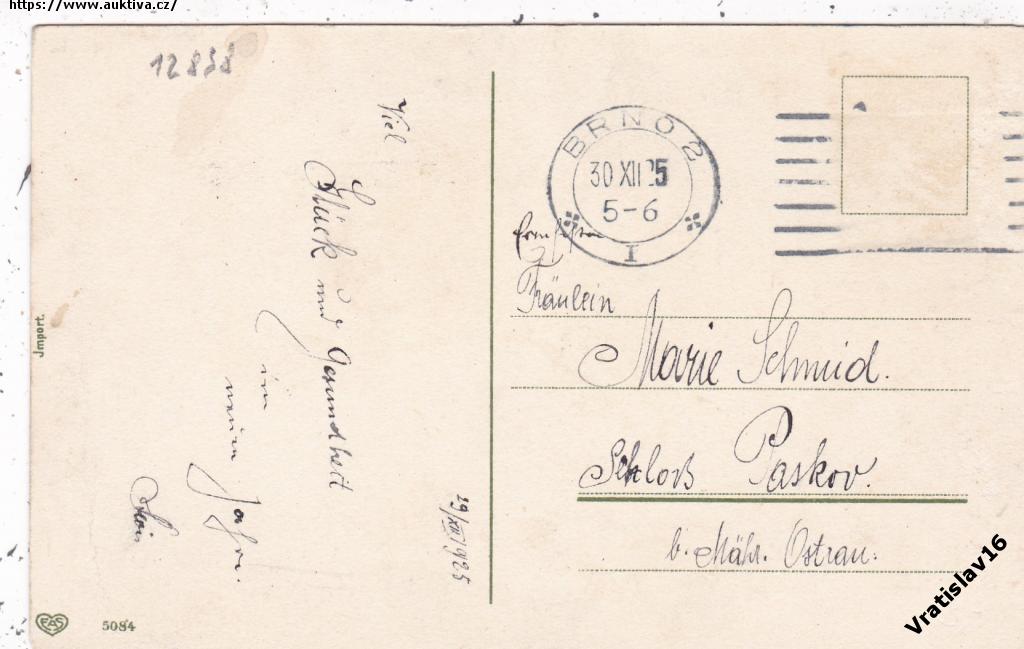 https://www.auktiva.cz/
12838
Viel
Glück und Gesundheit
im
neuen
Jahre.
29/XII 1925
Import.
EAS
5084
BRNO 2
30 XII 25
5-6
I
Fräulein
Marie Schmid.
Schloß Paskov.
b. Mähr. Ostrau.
Vratislav16